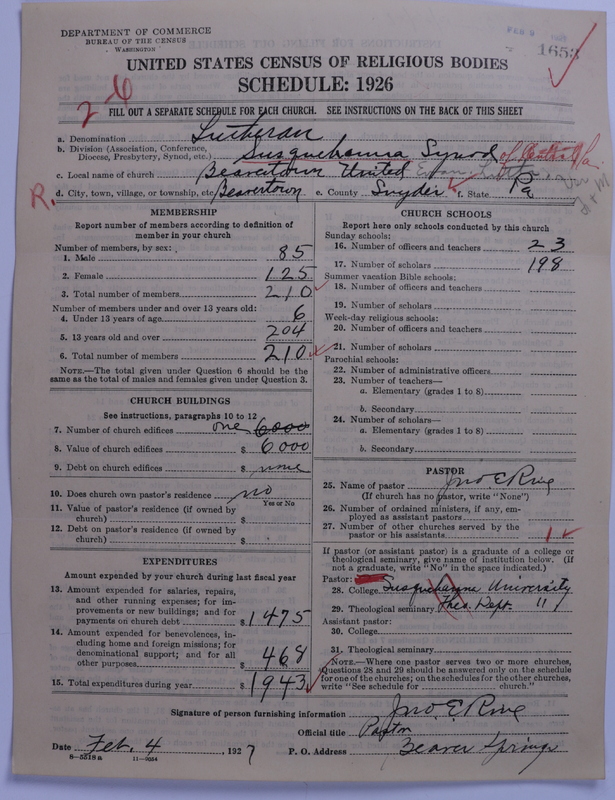 DEPARTMENT OF COMMERCE
BUREAU OF THE CENSUS
WASHINGTON
FEB 9
1653
UNITED STATES CENSUS OF RELIGIOUS BODIES
SCHEDULE: 1926
2-6
FILL OUT A SEPARATE SCHEDULE FOR EACH CHURCH. SEE INSTRUCTIONS ON THE BACK OF THIS SHEET
a. Denomination Lutheran
b. Division (Association, Conference, Diocese, Presbytery, Synod, etc.) Susquehanna Synod of
c. Local name of church Beavertown United
R.
d. City, town, village, or township, etc. Beavertown e. County Snyder f. State Pa
MEMBERSHIP
Report number of members according to definition of member in your church
Number of members, by sex:
1. Male 85
2. Female 125
3. Total number of members 210
Number of members under and over 13 years old:
4. Under 13 years of age 6
5. 13 years old and over 204
6. Total number of members 210
NOTE.—The total given under Question 6 should be the same as the total of males and females given under Question 3.
CHURCH BUILDINGS
See instructions, paragraphs 10 to 12
7. Number of church edifices one 6000
8. Value of church edifices $ 6000
9. Debt on church edifices $ none
10. Does church own pastor's residence no
Yes or No
11. Value of pastor's residence (if owned by church) $
12. Debt on pastor's residence (if owned by church) $
EXPENDITURES
Amount expended by your church during last fiscal year
13. Amount expended for salaries, repairs, and other running expenses; for improvements or new buildings; and for payments on church debt $ 1475
14. Amount expended for benevolences, including home and foreign missions; for denominational support; and for all other purposes $ 468
15. Total expenditures during year $ 1943
CHURCH SCHOOLS
Report here only schools conducted by this church
Sunday schools:
16. Number of officers and teachers 23
17. Number of scholars 198
Summer vacation Bible schools:
18. Number of officers and teachers
19. Number of scholars
Week-day religious schools:
20. Number of officers and teachers
21. Number of scholars
Parochial schools:
22. Number of administrative officers
23. Number of teachers—
a. Elementary (grades 1 to 8)
b. Secondary
24. Number of scholars—
a. Elementary (grades 1 to 8)
b. Secondary
PASTOR
25. Name of pastor Jno E Rine
(If church has no pastor, write "None")
26. Number of ordained ministers, if any, employed as assistant pastors
27. Number of other churches served by the pastor or his assistants 1
If pastor (or assistant pastor) is a graduate of a college or theological seminary, give name of institution below. (If not a graduate, write "No" in the space indicated.)
Pastor:
28. College Susquehanna University
29. Theological seminary Theo. Dept. "
Assistant pastor:
30. College
31. Theological seminary
NOTE.—Where one pastor serves two or more churches, Questions 28 and 29 should be answered only on the schedule for one of the churches; on the schedules for the other churches, write "See schedule for church."
Signature of person furnishing information Jno. E. Rine
Official title Pastor
Date Feb. 4, 1927 P. O. Address Beaver Springs
8—5518a 11—9054